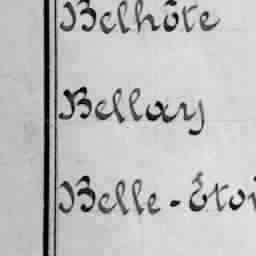 Belhôte
Bellay
Belle-Étoi